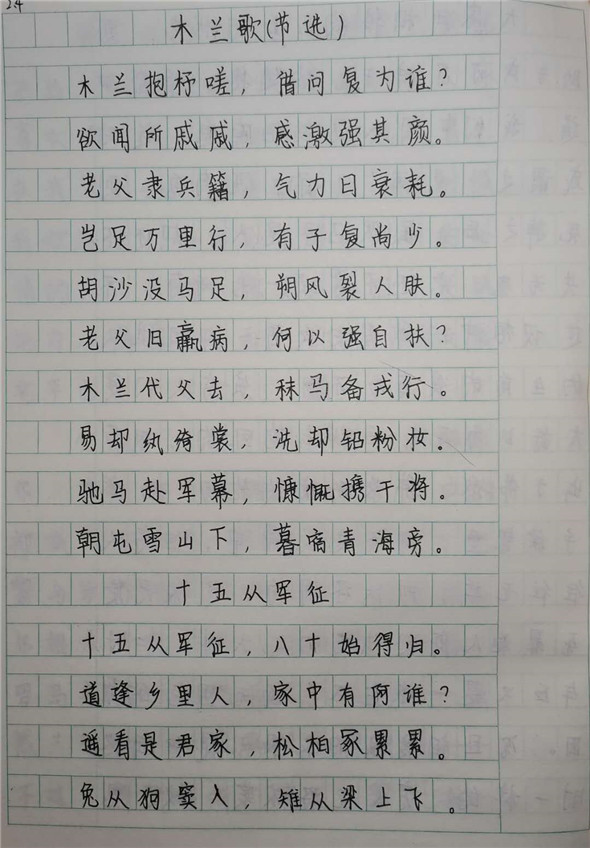 24
木兰歌(节选)
木兰抱杼嗟，借问复为谁？
欲闻所戚戚，感激强其颜。
老父隶兵籍，气力日衰耗。
岂足万里行，有子复尚少。
胡沙没马足，朔风裂人肤。
老父旧羸病，何以强自扶？
木兰代父去，秣马备戎行。
易却纨绮裳，洗却铅粉妆。
驰马赴军幕，慷慨携干将。
朝屯雪山下，暮宿青海旁。
十五从军征
十五从军征，八十始得归。
道逢乡里人，家中有阿谁？
遥看是君家，松柏冢累累。
兔从狗窦入，雉从梁上飞。